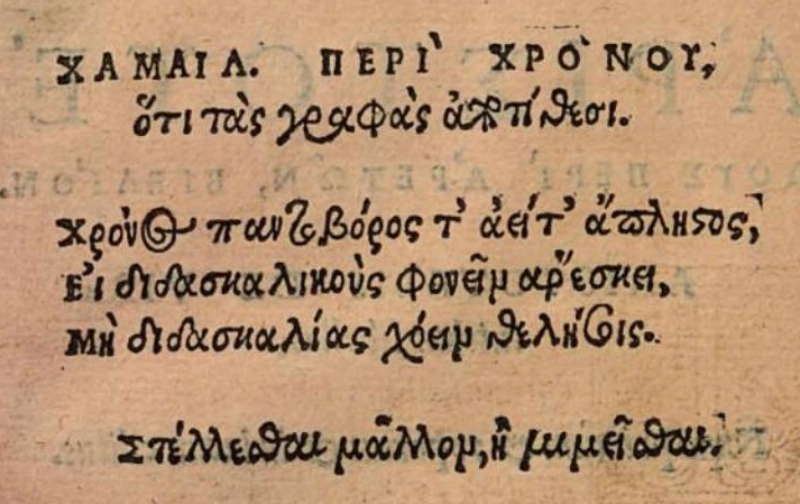 ΧΑΜΑΙΛ. ΠΕΡῚ ΧΡΌΝΟΥ,
ὅτι τὰς γραφὰς ἀντιτίθεσι.
χρόνος παντοβόρος τ' ἀεί τ' ἄπληστος,
Εἰ διδασκαλικοὺς φονεῖν αρέσκει,
Μὴ διδασκαλίας χέειν θελήσῃς.
Στέλλεσθαι μᾶλλον, ἢ μιμεῖσθαι.